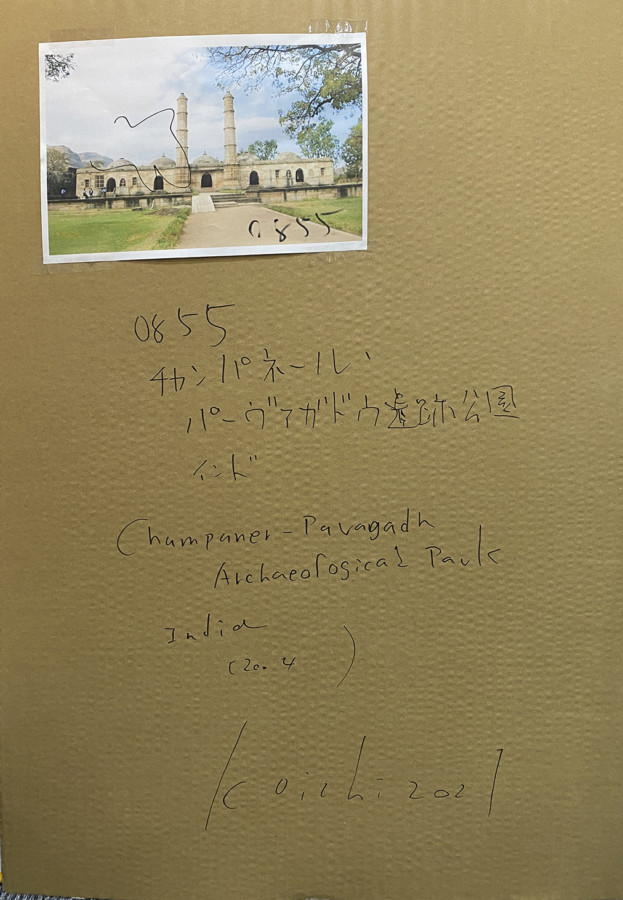 0855
0855
チャンパネール、
パーヴァガドゥ遺跡公園
インド
(Champaner-Pavagadh
Archaeological Park
India
(2004)
Koichi 2021